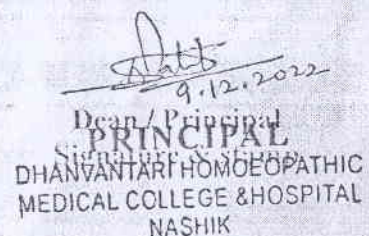 9.12.2022
Dean / Principal
PRINCIPAL
Signature &
DHANVANTARI HOMOEOPATHIC
MEDICAL COLLEGE & HOSPITAL
NASHIK